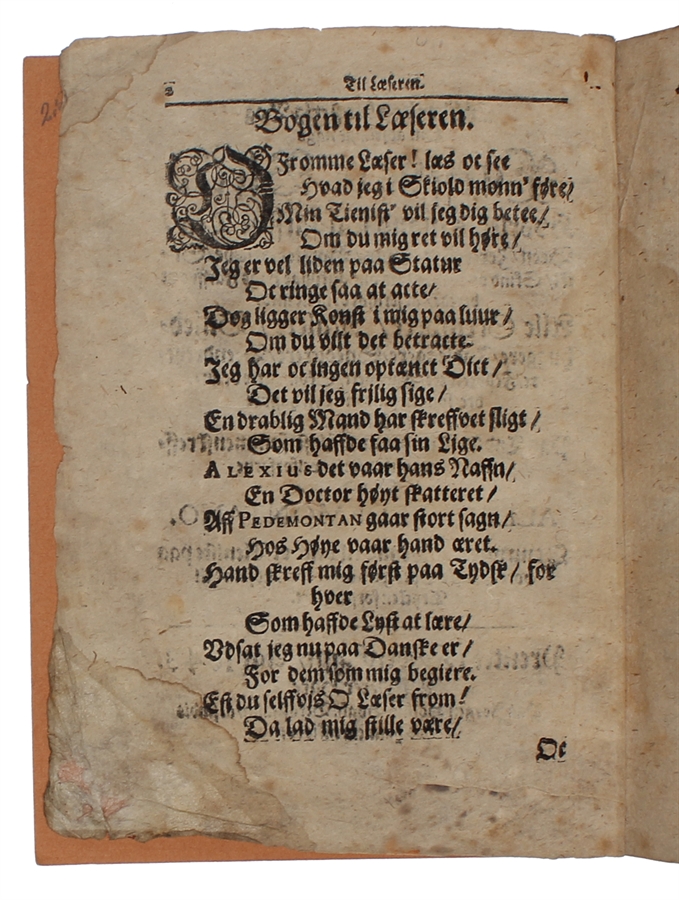 2
Til Læseren.
Bogen til Læseren.
O Fromme Læser! læs oc see
Hvad jeg i Skiold monn' føre/
Min Tienist' vil jeg dig betee/
Om du mig ret vil høre/
Jeg er vel liden paa Statur
Oc ringe saa at acte/
Dog ligger Konst i mig paa luur/
Om du vilt det betracte.
Jeg har oc ingen optænct Dict/
Det vil jeg frilig sige/
En drablig Mand har skreffvet sligt/
Som haffde faa sin Lige.
ALEXIUS det vaar hans Naffn/
En Doctor høyt skatteret/
Aff PEDEMONTAN gaar stort sagn/
Hos Høye vaar hand æret.
Hand skreff mig først paa Tydsk/ for
hver
Som haffde Lyst at lære/
Vdsat jeg nu paa Danske er/
For dem som mig begiere.
Est du selffvjs O Læser from!
Da lad mig stille være/
Oc